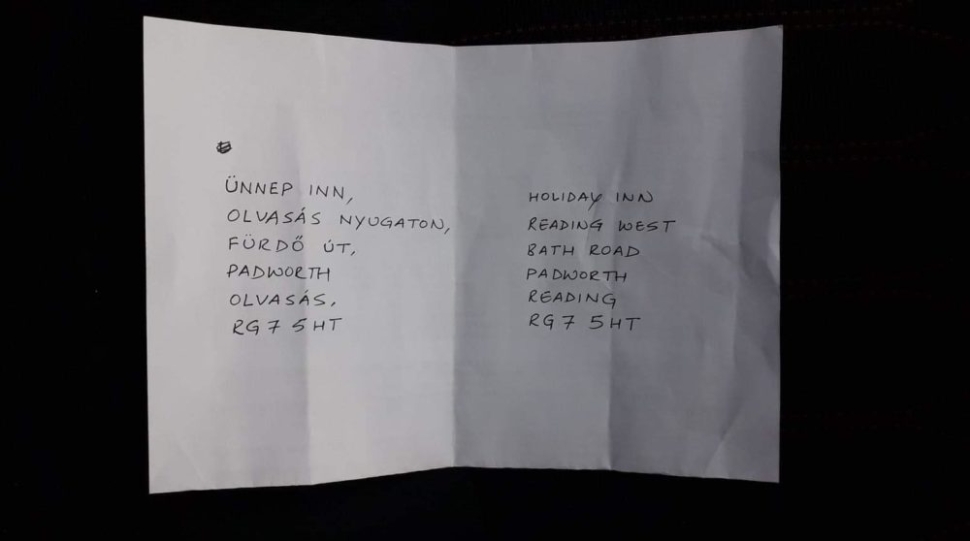 ÜNNEP INN,
OLVASÁS NYUGATON,
FÜRDŐ ÚT,
PADWORTH
OLVASÁS,
RG7 5HT
HOLIDAY INN
READING WEST
BATH ROAD
PADWORTH
READING
RG7 5HT